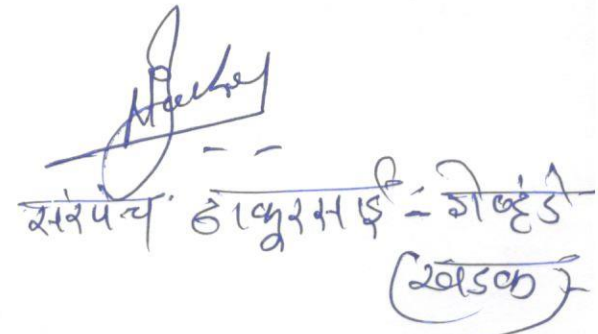 सरपंच ठाकुरसाई - गेव्हंडे
(खडक)